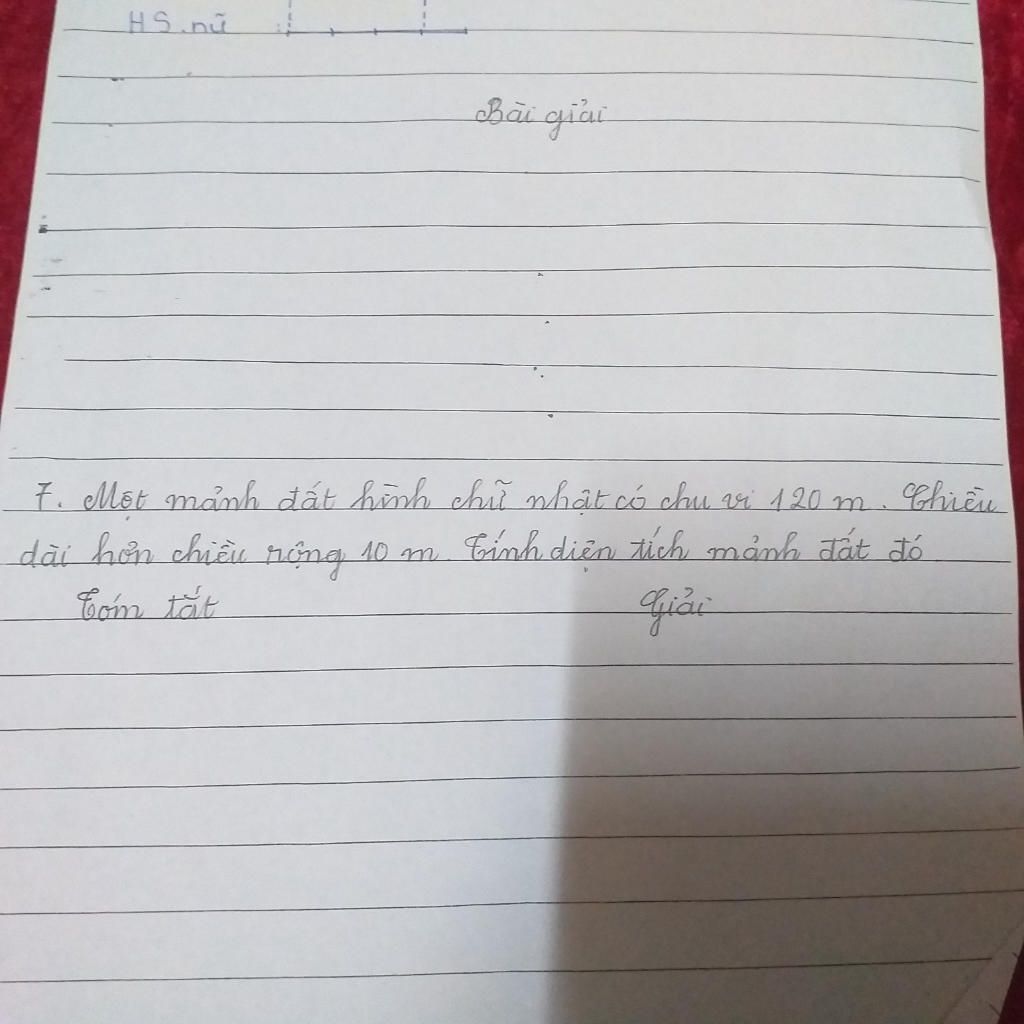 HS.nữ
Bài giải
7. Một mảnh đất hình chữ nhật có chu vi 120 m. Chiều
dài hơn chiều rộng 10 m. Tính diện tích mảnh đất đó
Tóm tắt Giải